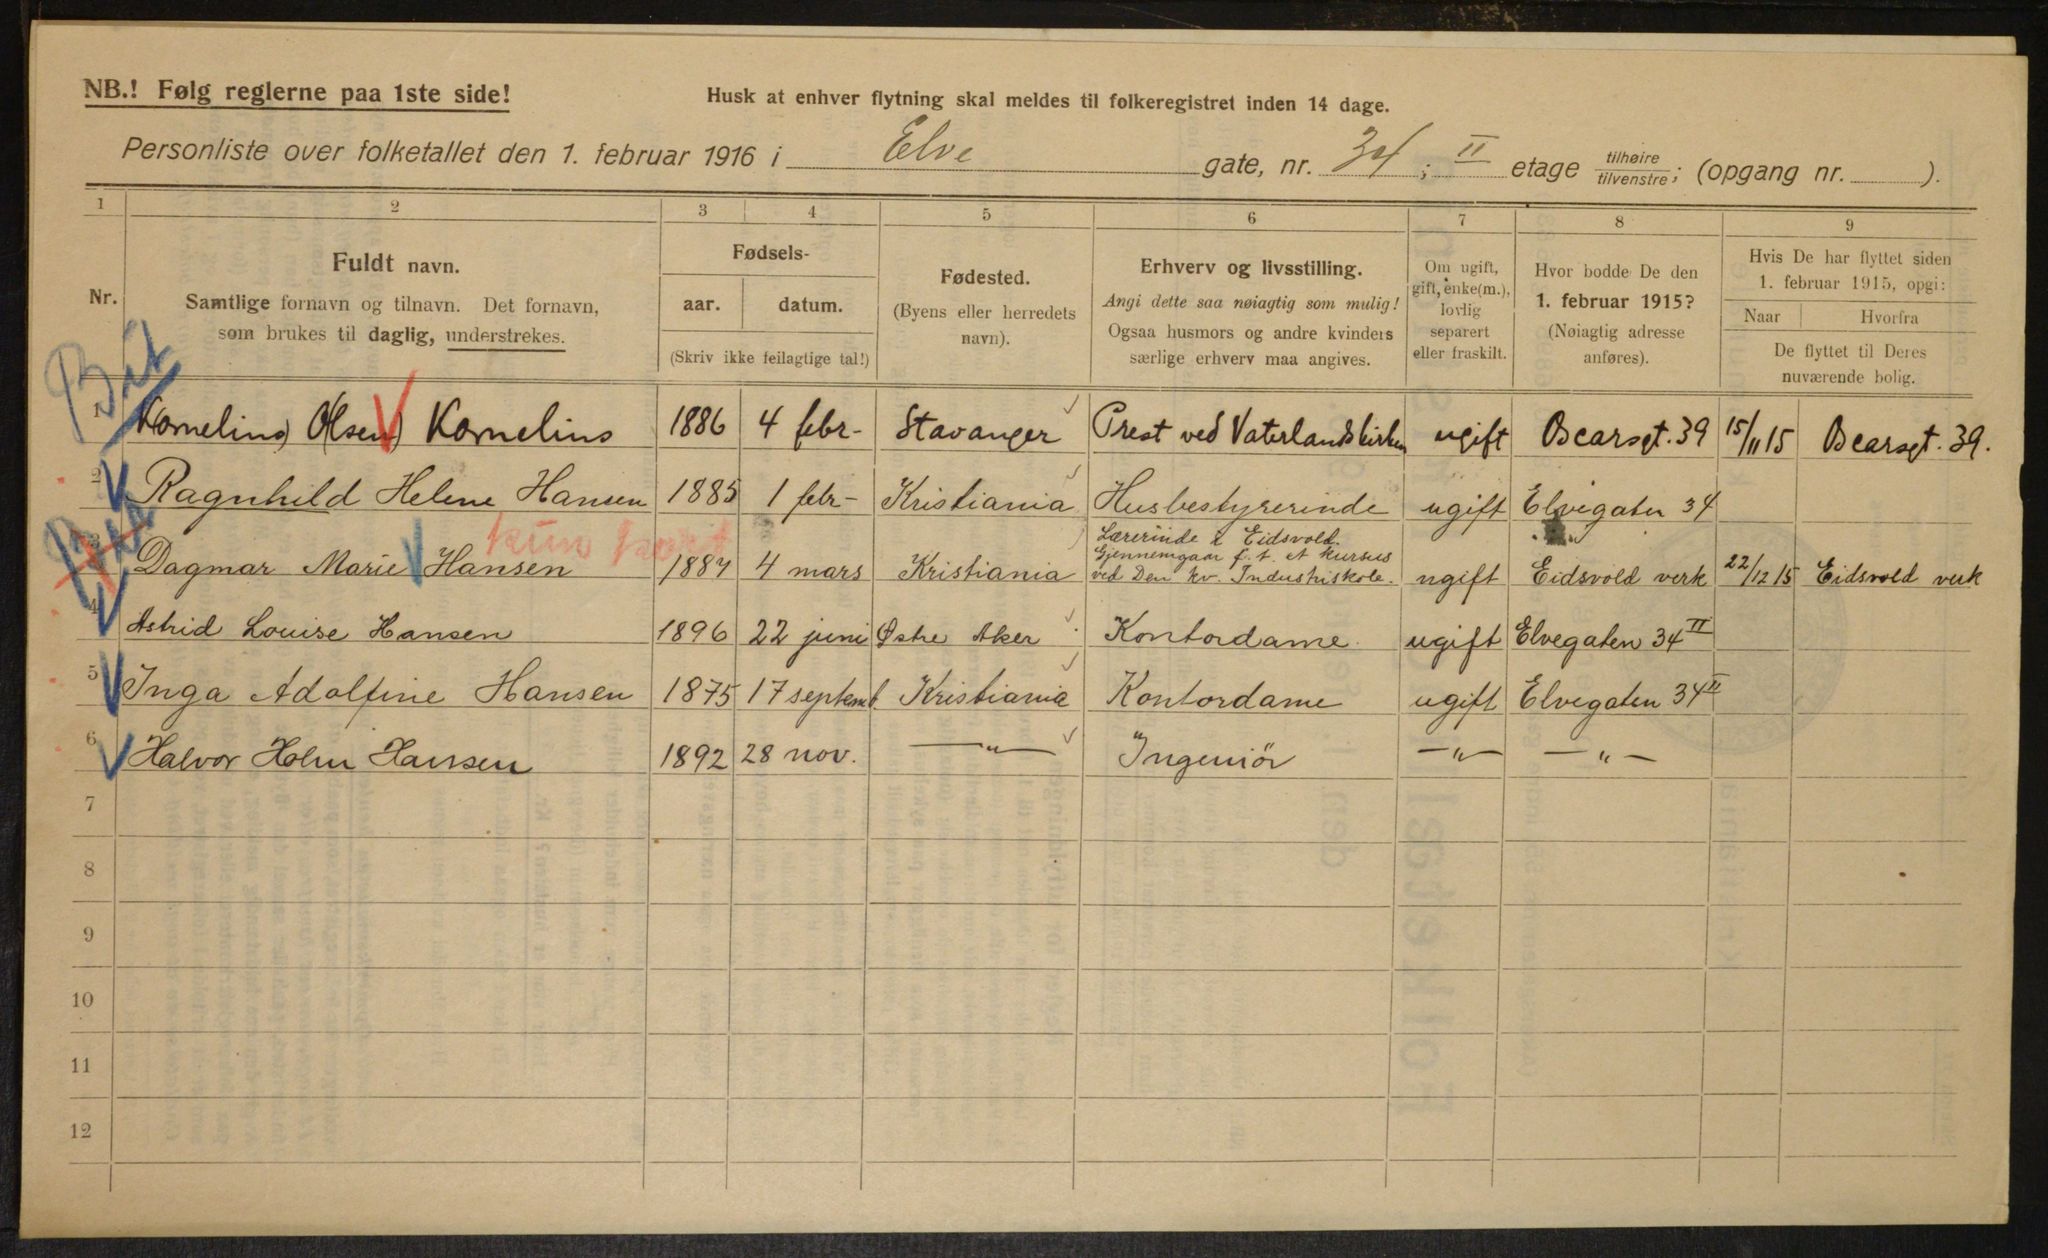 NB.! Følg reglerne paa 1ste side!
Husk at enhver flytning skal meldes til folkeregistret inden 14 dage.
Personliste over folketallet den 1. februar 1916 i Elve gate, nr. 34 ; II etage tilhøire tilvenstre; (opgang nr. ).
1 2 3 4 5 6 7 8 9
Nr.
Fuldt navn.
Samtlige fornavn og tilnavn. Det fornavn,
som brukes til daglig, understrekes.
Fødsels-
aar. datum.
(Skriv ikke feilagtige tal!)
Fødested.
(Byens eller herredets
navn).
Erhverv og livsstilling.
Angi dette saa nøiagtig som mulig!
Ogsaa husmors og andre kvinders
særlige erhverv maa angives.
Om ugift,
gift, enke(m.),
lovlig
separert
eller fraskilt.
Hvor bodde De den
1. februar 1915?
(Nøiagtig adresse
anføres).
Hvis De har flyttet siden
1. februar 1915, opgi:
Naar Hvorfra
De flyttet til Deres
nuværende bolig.
1 Kornelius) Olsen) Kornelius 1886 4 febr- Stavanger Prest ved Vaterlandskirken ugift Oscarsgt. 39 15/11 15 Oscarsgt. 39.
2 Ragnhild Helene Hansen 1885 1 febr- Kristiania Husbestyrerinde ugift Elvegaten 34
kun
3 Dagmar Marie Hansen 1887 4 mars Kristiania Lærerinde i Eidsvold.
Gjennemgaar f. t. et kursus
ved Den kv. Industriskole. ugift Eidsvold verk 22/12 15 Eidsvold verk
4 Astrid Louise Hansen 1896 22 juni Østre Aker Kontordame ugift Elvegaten 34 II
5 Inga Adolfine Hansen 1875 17 septemb. Kristiania Kontordame ugift Elvegaten 34 II
6 Halvor Holm Hansen 1892 28 nov. —"— Ingeniör —"— —"—
7
8
9
10
11
12